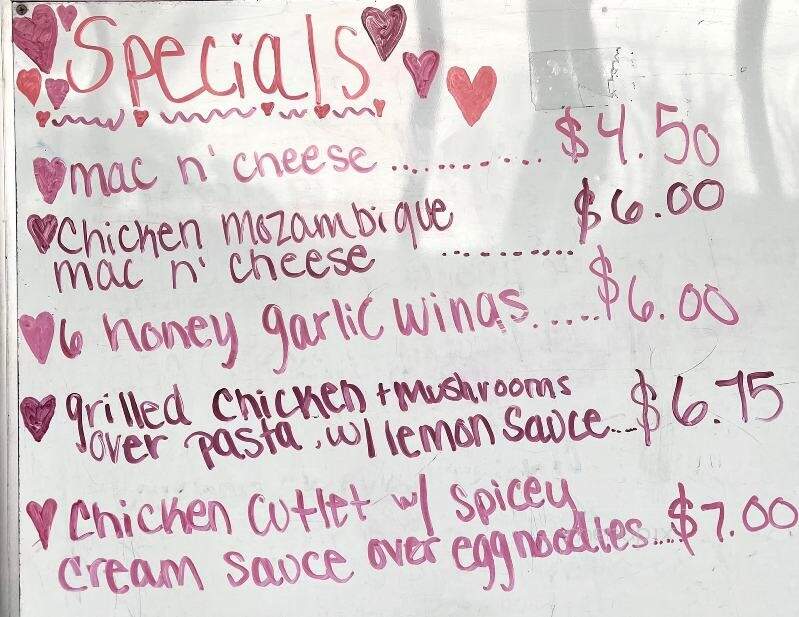 Specials
mac n' cheese .............. $4.50
Chicken Mozambique
mac n' cheese .......... $6.00
6 honey garlic wings ..... $6.00
grilled chicken + Mushrooms
over pasta, w/ lemon sauce... $6.75
Chicken cutlet w/ spicey
cream sauce over eggnoodles... $7.00